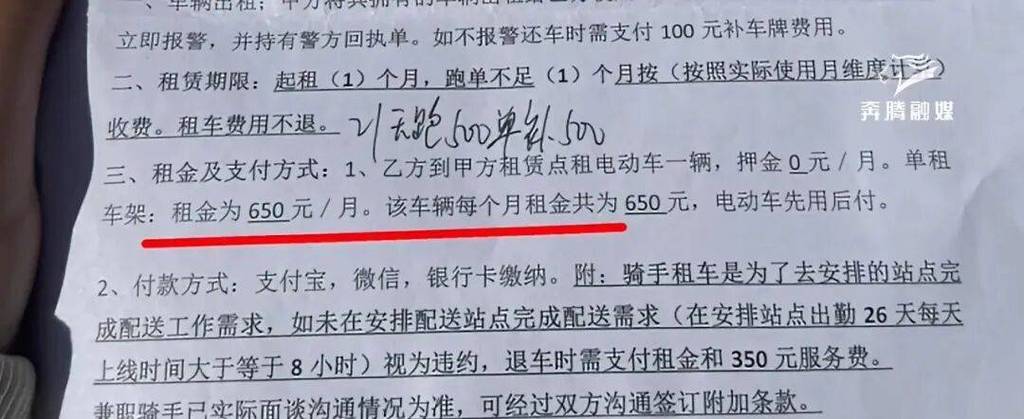 一、车辆出租；甲方将其拥有的车辆出租给乙方使用
立即报警，并持有警方回执单。如不报警还车时需支付 100 元补车牌费用。
二、租赁期限：起租（1）个月，跑单不足（1）个月按（按照实际使用月维度计算）
收费。租车费用不退。 21天跑500单补500
三、租金及支付方式：1、乙方到甲方租赁点租电动车一辆，押金 0 元 / 月。单租
车架：租金为 650 元 / 月。该车辆每个月租金共为 650 元，电动车先用后付。
2、付款方式：支付宝，微信，银行卡缴纳。附：骑手租车是为了去安排的站点完
成配送工作需求，如未在安排配送站点完成配送需求（在安排站点出勤 26 天每天
上线时间大于等于 8 小时）视为违约，退车时需支付租金和 350 元服务费。
兼职骑手已实际面谈沟通情况为准，可经过双方沟通签订附加条款。
奔腾融媒